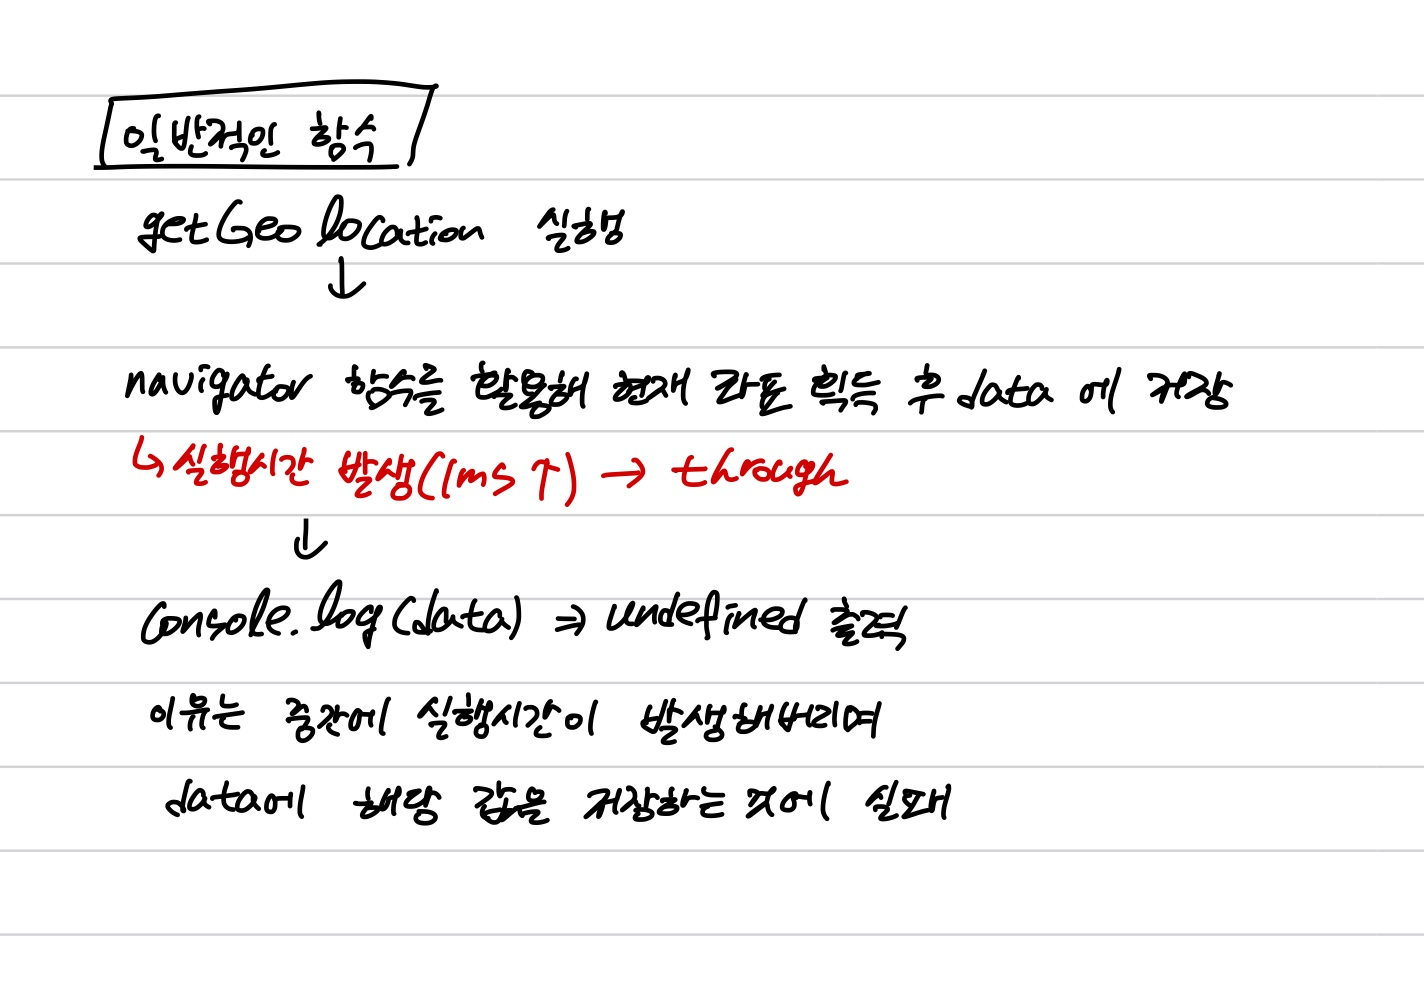 일반적인 함수
getGeolocation 실행
↓
navigator 함수를 활용해 현재 좌표 획득 후 data에 저장
↳ 실행시간 발생(1ms↑) → through
↓
console.log(data) ⇒ undefined 출력
이유는 중간에 실행시간이 발생해버리며
data에 해당 값을 저장하는 것에 실패